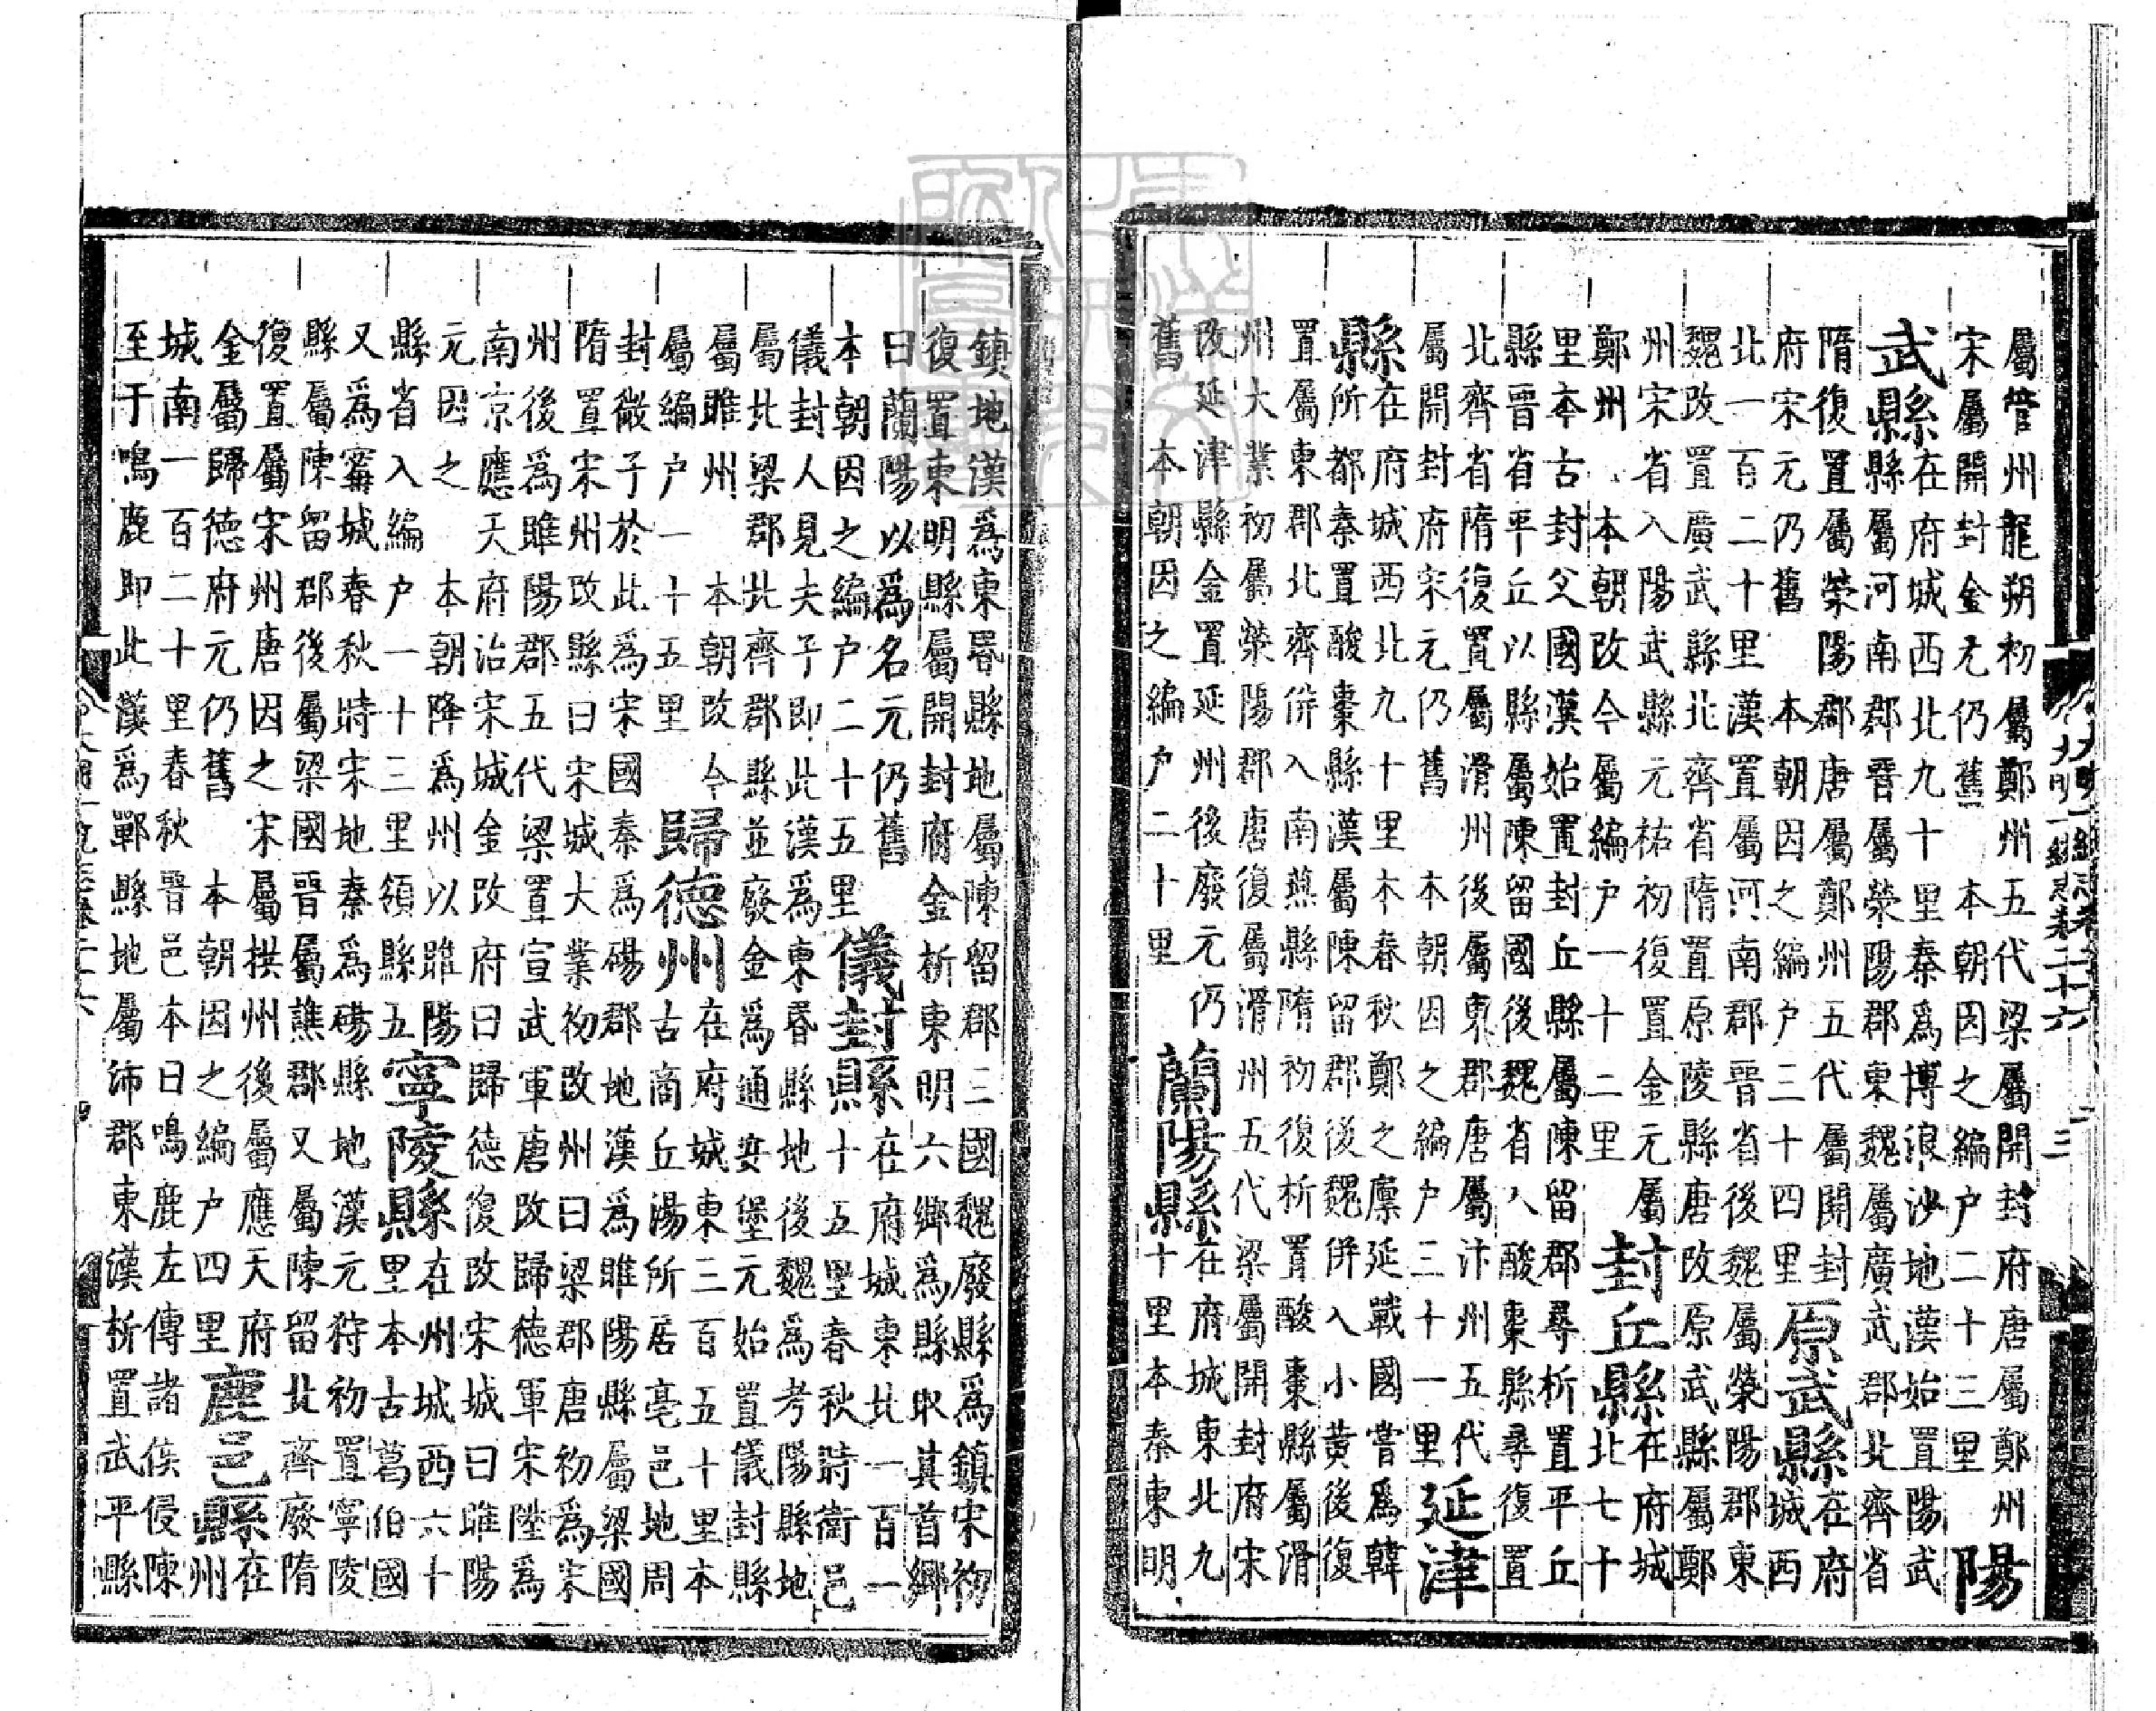 屬管州龍朔初屬鄭州五代梁屬開封府唐屬鄭州
宋屬開封金元仍舊 本朝因之編户二十三里 陽
武縣在府城西北九十里秦爲博浪沙地漢始置陽武
縣屬河南郡晉屬滎陽郡東魏屬廣武郡北齊省
隋復置屬滎陽郡唐屬鄭州五代屬開封
府宋元仍舊 本朝因之編户三十四里 原武縣在府城西
北一百二十里漢置屬河南郡晉省後魏屬滎陽郡東
魏改置廣武縣北齊省隋置原陵縣唐改原武縣屬鄭
州宋省入陽武縣元祐初復置金元屬
鄭州 本朝改今屬編户一十二里 封丘縣在府城北七十
里本古封父國漢始置封丘縣屬陳留郡尋析置平丘
縣晉省平丘以縣屬陳留國後魏省入酸棗縣尋復置
北齊省隋復置屬滑州後屬東郡唐屬汴州五代
屬開封府宋元仍舊 本朝因之編户三十一里 延津
縣在府城西北九十里本春秋鄭之廩延戰國嘗爲韓
所都秦置酸棗縣漢屬陳留郡後魏併入小黄後復
置屬東郡北齊併入南燕縣隋初復析置酸棗縣屬滑
州大業初屬滎陽郡唐復屬滑州五代梁屬開封府宋
改延津縣金置延州後廢元仍
舊 本朝因之編户二十里 蘭陽縣在府城東北九十里本秦東明
鎮地漢爲東昬縣地屬陳留郡三國魏廢縣爲鎮宋初
復置東明縣屬開封府金析東明六鄉爲縣取其首鄉
曰蘭陽以爲名元仍舊
本朝因之編户二十五里 儀封縣在府城東北一百一十五里春秋時衛邑
儀封人見夫子即此漢爲東昬縣地後魏爲考陽縣地
屬北梁郡北齊郡縣並廢金爲通安堡元始置儀封縣
屬睢州 本朝改今
屬編户一十五里 歸德州在府城東三百五十里本古商丘湯所居亳邑地周
封微子於此爲宋國秦爲碭郡地漢爲睢陽縣屬梁國
隋置宋州改縣曰宋城大業初改州曰梁郡唐初爲宋
州後爲睢陽郡五代梁置宣武軍唐改歸德軍宋陞爲
南京應天府治宋城金改府曰歸德復改宋城曰睢陽
元因之 本朝降爲州以睢陽
縣省入編户一十三里領縣五 寧陵縣在州城西六十里本古葛伯國
又爲甯城春秋時宋地秦爲碭縣地漢元狩初置寧陵
縣屬陳留郡後屬梁國晉屬譙郡又屬陳留北齊廢隋
復置屬宋州唐因之宋屬拱州後屬應天府
金屬歸德府元仍舊 本朝因之編户四里 鹿邑縣在州
城南一百二十里春秋晉邑本曰鳴鹿左傳諸侯侵陳
至于鳴鹿即此漢爲鄲縣地屬沛郡東漢析置武平縣